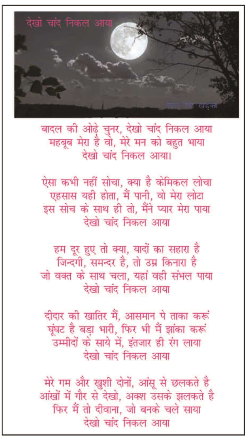 देखो चांद निकल आया
बादल की ओढ़े चुनर, देखो चांद निकल आया
महबूब मेरा है वो, मेरे मन को बहुत भाया
देखो चांद निकल आया।
ऐसा कभी नहीं सोचा, क्या है केमिकल लोचा
एहसास यही होता, मैं पानी, वो मेरा लोटा
इस सोच के साथ ही तो, मैंने प्यार मेरा पाया
देखो चांद निकल आया
हम दूर हुए तो क्या, यादों का सहारा है
जिन्दगी, समन्दर है, तो उम्र किनारा है
जो वक्त के साथ चला, यहां वही संभल पाया
देखो चांद निकल आया
दीदार की खातिर मैं, आसमान पे ताका करूं
घूंघट है बड़ा भारी, फिर भी मैं झांका करूं
उम्मीदों के साये में, इंतजार ही रंग लाया
देखो चांद निकल आया
मेरे गम और खुशी दोनों, आंसू से छलकते है
आंखों में गौर से देखो, अक्श उसके झलकते है
फिर मैं तो दीवाना, जो बनके चले साया
देखो चांद निकल आया